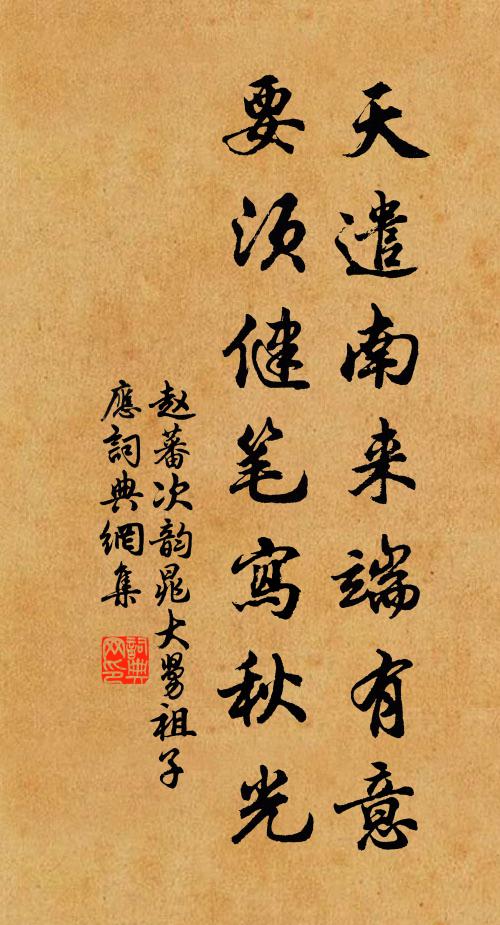 天遣南来端有意
要须健笔寫秋光
赵蕃次韵晁大舅祖子
應詞典網集
詞典
网印